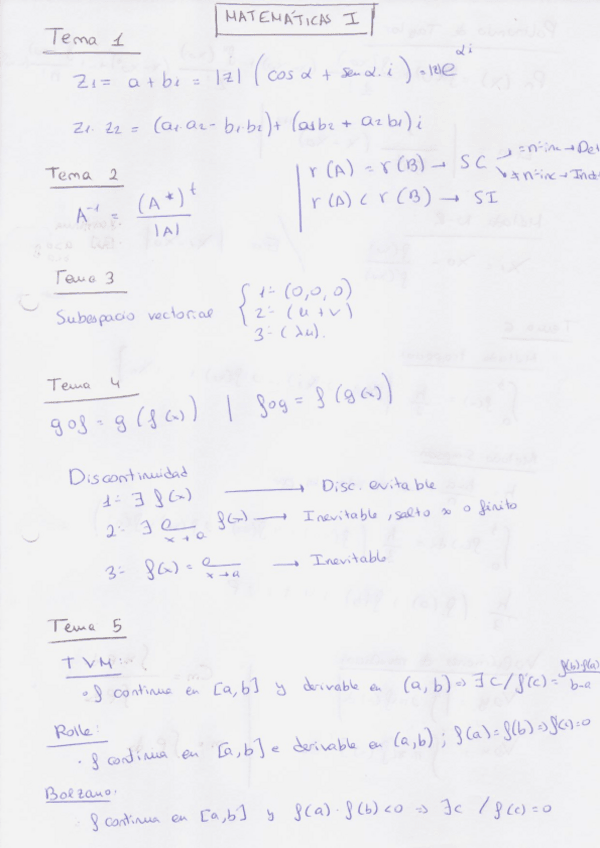 MATEMÁTICAS I
Tema 1
Z₁ = a + bi = |z| (cos α + sen α · i) = |z|e^αi
Z₁ · Z₂ = (a₁·a₂ - b₁·b₂) + (a₁b₂ + a₂b₁) i
Tema 2
A⁻¹ = (A*)^t / |A|
r(A) = r(B) → SC
= nº inc → Det
≠ nº inc → Ind
r(A) < r(B) → SI
Tema 3
Subespacio vectorial
1º (0,0,0)
2º (u + v)
3º (λu).
Tema 4
gof = g(f(x)) | fog = f(g(x))
Discontinuidad
1º ∃ f(x) → Disc. evitable
2º ∃ x→a f(x) → Inevitable, salto ∞ o finito
3º f(x) = x→a → Inevitable
Tema 5
TVM:
· f continua en [a,b] y derivable en (a,b) ⇒ ∃ c / f'(c) = b-a
Rolle:
· f continua en [a,b] e derivable en (a,b) ; f(a) = f(b) ⇒ f'(c) = 0
Bolzano:
· f continua en [a,b] y f(a) · f(b) < 0 ⇒ ∃c / f(c) = 0